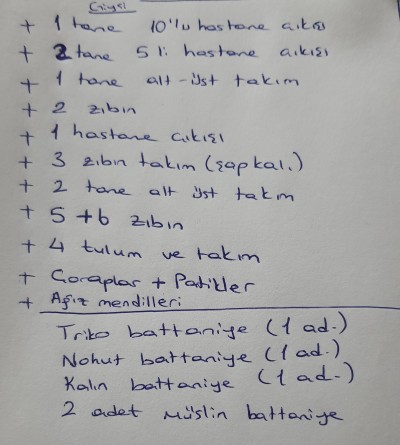 Giysi
+ 1 tane 10'lu hastane çıkışı
+ 2 tane 5 li hastane çıkışı
+ 1 tane alt-üst takım
+ 2 zıbın
+ 1 hastane çıkışı
+ 3 zıbın takım (şapkalı)
+ 2 tane alt üst takım
+ 5+6 zıbın
+ 4 tulum ve takım
+ Çoraplar + Patikler
+ Ağız mendilleri
Triko battaniye (1 ad.)
Nohut battaniye (1 ad.)
Kalın battaniye (1 ad.)
2 adet müslin battaniye